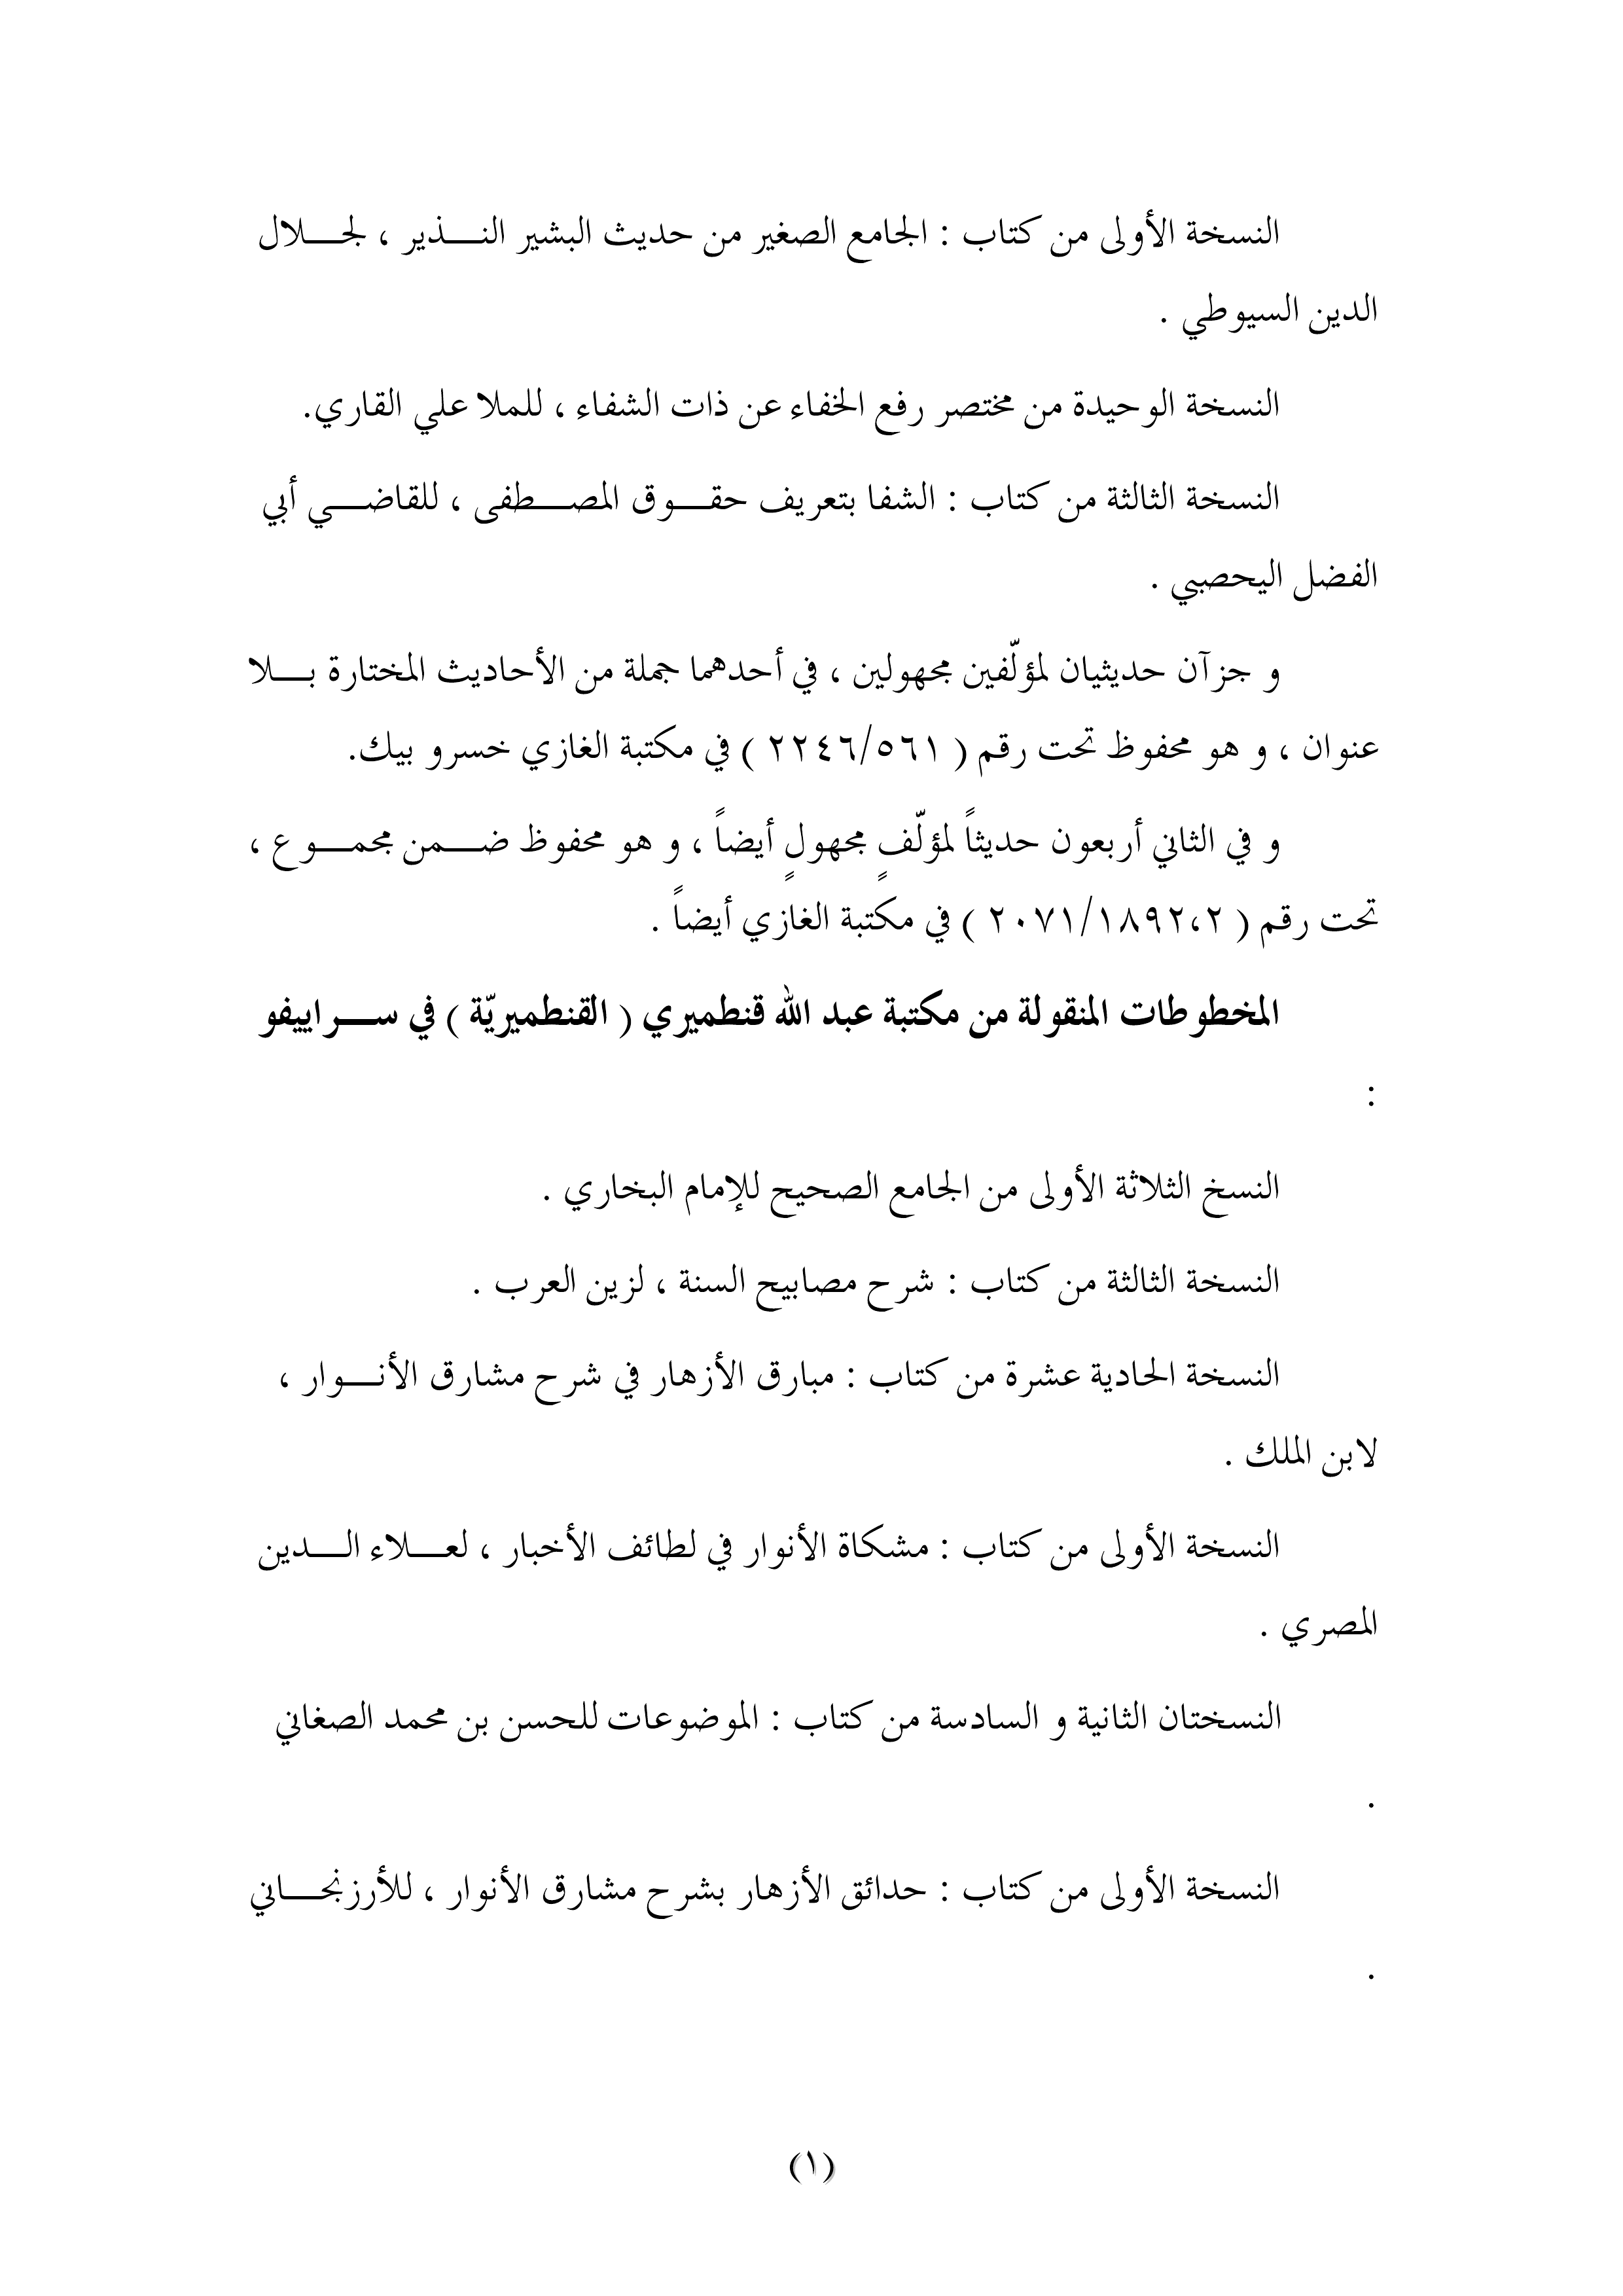 النسخة الأولى من كتاب : الجامع الصغير من حديث البشير النـــذير ، لجـــلال
الدين السيوطي .
النسخة الوحيدة من مختصر رفع الخفاء عن ذات الشفاء ، للملا علي القاري.
النسخة الثالثة من كتاب : الشفا بتعريف حقـــوق المصـــطفى ، للقاضـــي أبي
الفضل اليحصبي .
و جزآن حديثيان لمؤلّفين مجهولين ، في أحدهما جملة من الأحاديث المختارة بـــلا
عنوان ، و هو محفوظ تحت رقم ( ٢٢٤٦/٥٦١ ) في مكتبة الغازي خسرو بيك.
و في الثاني أربعون حديثاً لمؤلّفٍ مجهولٍ أيضاً ، و هو محفوظ ضـــمن مجمـــوع ،
تحت رقم ( ٢٠٧١/١٨٩٢،٢ ) في مكتبة الغازي أيضاً .
المخطوطات المنقولة من مكتبة عبد الله قنطميري ( القنطميريّة ) في ســـراييفو
:
النسخ الثلاثة الأولى من الجامع الصحيح للإمام البخاري .
النسخة الثالثة من كتاب : شرح مصابيح السنة ، لزين العرب .
النسخة الحادية عشرة من كتاب : مبارق الأزهار في شرح مشارق الأنـــوار ،
لابن الملك .
النسخة الأولى من كتاب : مشكاة الأنوار في لطائف الأخبار ، لعـــلاء الـــدين
المصري .
النسختان الثانية و السادسة من كتاب : الموضوعات للحسن بن محمد الصغاني
.
النسخة الأولى من كتاب : حدائق الأزهار بشرح مشارق الأنوار ، للأرزنجـــاني
.
(١)